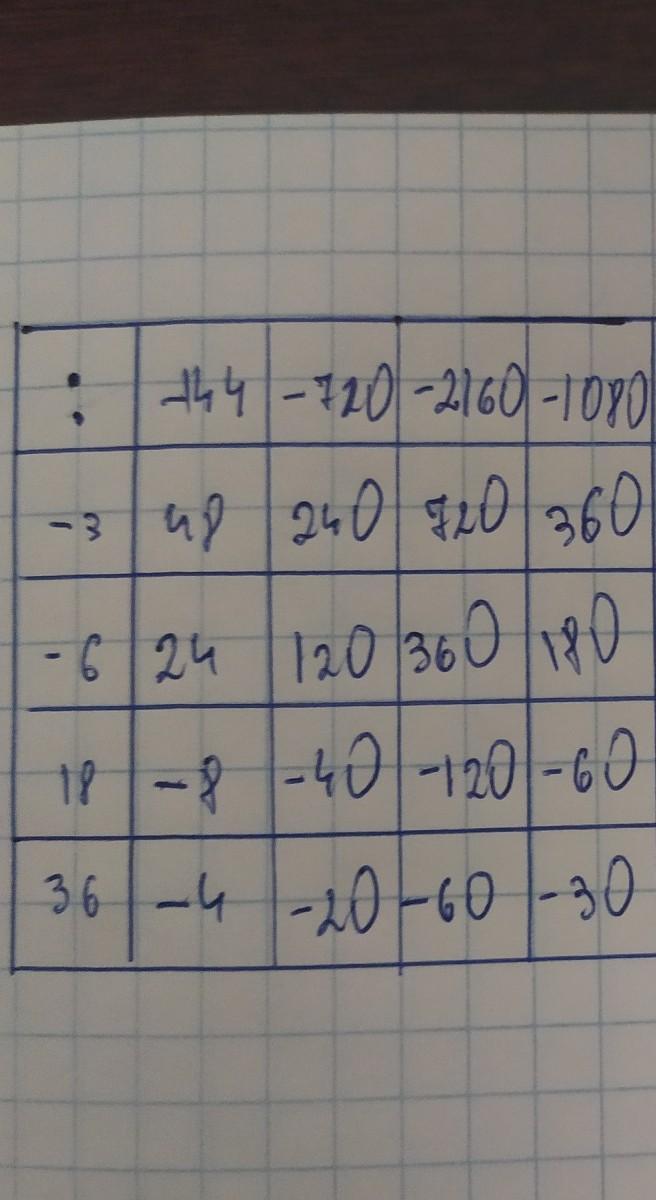 : -144 -720 -2160 -1080
-3 48 240 720 360
-6 24 120 360 180
18 -8 -40 -120 -60
36 -4 -20 -60 -30